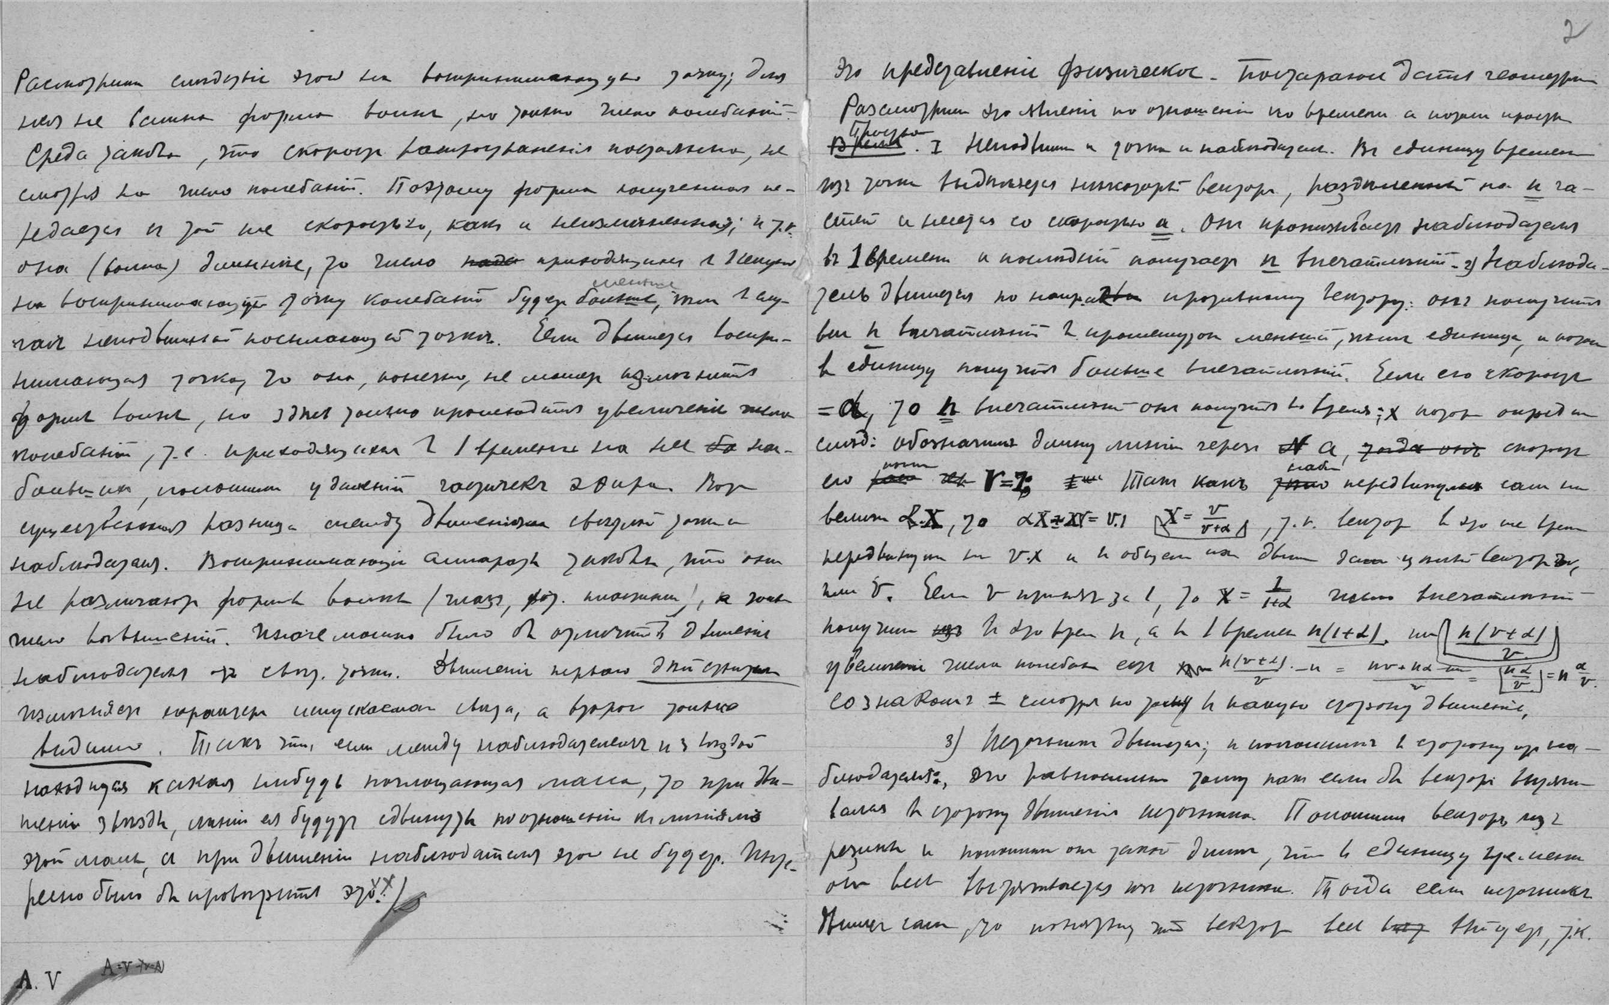 Рассмотрим следствіе этого на воспринимающую точку; для
нея не важна форма волны, но только число колебаній.
Среда такова, что скорость распространенія постоянна, не
смотря на число колебаній. Поэтому форма полученная пе-
редается и той же скоростью, какъ и неизмѣненная; и т.к.
она (волна) длиннѣе, то число приходящихся в 1 секунду
на воспринимающую точку колебаній будетъ меньше, чѣм в слу-
чаѣ неподвижной посылающей точки. Если движется воспри-
нимающая точка, то она, конечно, не может измѣнить
форму волны, но здѣсь только происходитъ увеличеніе числа
колебаній, т.е. приходящихся в 1 времени на нее
большихъ, положимъ удареній частичекъ эфира. Вот
существенная разница между движеніями свѣтлой точки и
наблюдателя. Воспринимающіе аппараты таковы, что они
не различают формы волны (глаз, фот. пластинка),
число возвышеній. Иначе можно было бы отличить движеніе
наблюдателя от свѣт. точки. Движеніе перваго дѣйствительно
измѣняетъ характеръ испускаемаго свѣта, а второе только
видимо. Такъ что, если между наблюдателемъ и звѣздой
находится какая нибудь поглощающая масса, то при дви-
женіи звѣзды, линіи ея будутъ сдвинуты по отношенію къ линіямъ
этой массы, а при движеніи наблюдателя этого не будетъ. Инте-
ресно было бы провѣрить это xx)
A. V
2
Это представленіе физическое. Постараюсь дать геометрич
Разсмотрим это явленіе по отношенію ко времени а потом простр
Простр
Время. I Неподвижны и точка и наблюдатель. Въ единицу времени
изъ точки выдвигается нѣкоторый векторъ, раздѣленный на n ча-
стей и несется со скоростью a. Онъ пронизываетъ наблюдателя
въ 1 времени и послѣдній получаетъ n впечатлѣній. 2) Наблюда-
тель движется по направ противному вектору: онъ получитъ
всѣ n впечатлѣній в промежуток меньшій, чѣмъ единица, и потом
в единицу получитъ больше впечатлѣній. Если его скорость
= α, то n впечатлѣній онъ получитъ во время x
слѣд: обозначим длину линіи через a, скорость
его v = Так какъ передвинулся сам на
велич α.x, то αx+xv = v.1 x = v/(v+α), т.к. вектор в это же время
передвинулся на v.x и в общем
или v. Если v принять за 1, то x = 1/(1+α) число впечатлѣній
получим в это время n, а в 1 времени n(1+α). или n(v+α)/v
увеличеніе числа колебан есть n(v+α)/v − n = = nα/v = n α/v
со знакомъ ± смотря по тому в какую сторону движеніе.
3) Источник движется; и положимъ в сторону отъ на-
блюдателя, это равносильно тому как если бы векторъ вытяги-
вался в сторону движенія источника. Положимъ векторъ изъ
резины и положим он такой длины, что в единицу времени
онъ весь вытягивается изъ источника. Тогда если источникъ
движется сам, то понятно, что вектор весь выйдет, т.к.